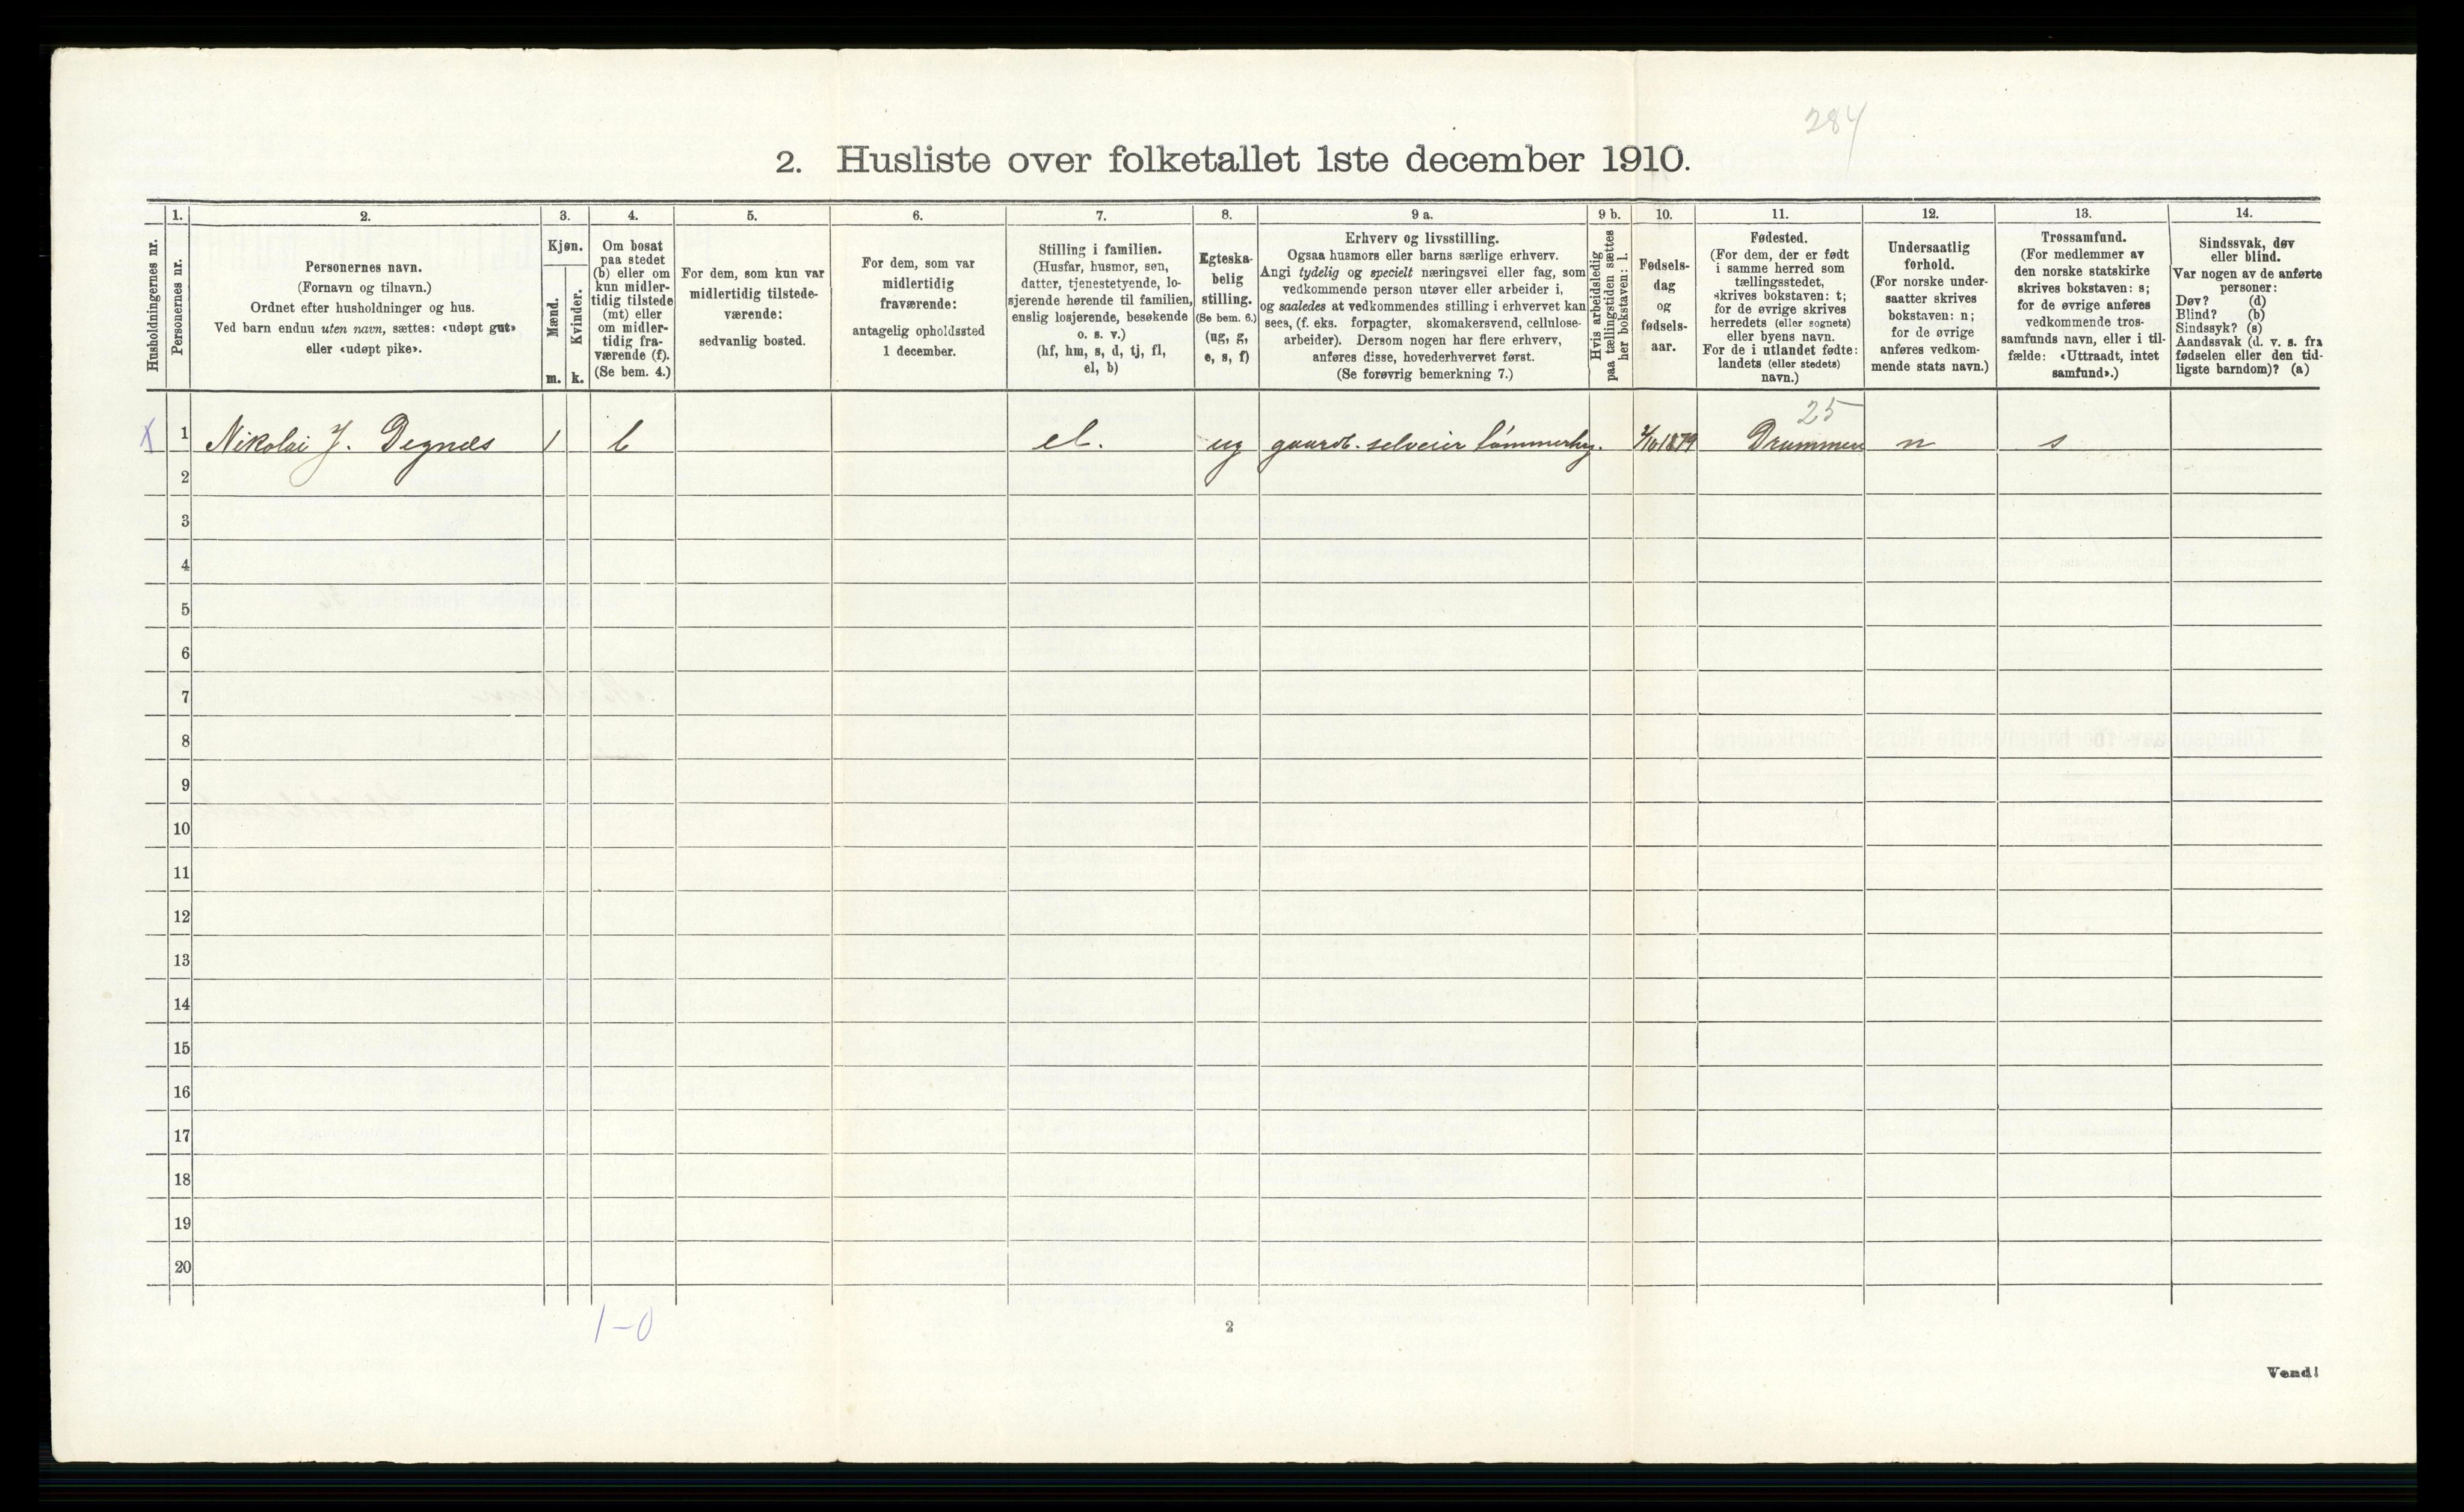 284
2. Husliste over folketallet 1ste december 1910.
Husholdningernes nr.
1.
Personernes nr.
2.
Personernes navn.
(Fornavn og tilnavn.)
Ordnet efter husholdninger og hus.
Ved barn endnu uten navn, sættes: «udøpt gut»
eller «udøpt pike».
3.
Kjøn.
Mænd.
Kvinder.
m. k.
4.
Om bosat
paa stedet
(b) eller om
kun midler-
tidig tilstede
(mt) eller
om midler-
tidig fra-
værende (f).
(Se bem. 4.)
5.
For dem, som kun var
midlertidig tilstede-
værende:
sedvanlig bosted.
6.
For dem, som var
midlertidig
fraværende:
antagelig opholdssted
1 december.
7.
Stilling i familien.
(Husfar, husmor, søn,
datter, tjenestetyende, lo-
sjerende hørende til familien,
enslig losjerende, besøkende
o. s. v.)
(hf, hm, s, d, tj, fl,
el, b)
8.
Egteska-
belig
stilling.
(Se bem. 6.)
(ug, g,
e, s, f)
9 a.
Erhverv og livsstilling.
Ogsaa husmors eller barns særlige erhverv.
Angi tydelig og specielt næringsvei eller fag, som
vedkommende person utøver eller arbeider i,
og saaledes at vedkommendes stilling i erhvervet kan
sees, (f. eks. forpagter, skomakersvend, cellulose-
arbeider). Dersom nogen har flere erhverv,
anføres disse, hovederhvervet først.
(Se forøvrig bemerkning 7.)
9 b.
Hvis arbeidsledig
paa tællingstiden sættes
her bokstaven: l.
10.
Fødsels-
dag
og
fødsels-
aar.
11.
Fødested.
(For dem, der er født
i samme herred som
tællingsstedet,
skrives bokstaven: t;
for de øvrige skrives
herredets (eller sognets)
eller byens navn.
For de i utlandet fødte:
landets (eller stedets)
navn.)
12.
Undersaatlig
forhold.
(For norske under-
saatter skrives
bokstaven: n;
for de øvrige
anføres vedkom-
mende stats navn.)
13.
Trossamfund.
(For medlemmer av
den norske statskirke
skrives bokstaven: s;
for de øvrige anføres
vedkommende tros-
samfunds navn, eller i til-
fælde: «Uttraadt, intet
samfund».)
14.
Sindssvak, døv
eller blind.
Var nogen av de anførte
personer:
Døv? (d)
Blind? (b)
Sindssyk? (s)
Aandssvak (d. v. s. fra
fødselen eller den tid-
ligste barndom)? (a)
25
X 1 Nikolai J. Degnæs 1 b el. ug gaardb. selveier tømmerhug. 2/10 1879 Drammen n s
2
3
4
5
6
7
8
9
10
11
12
13
14
15
16
17
18
19
20
1-0
2
Vend!